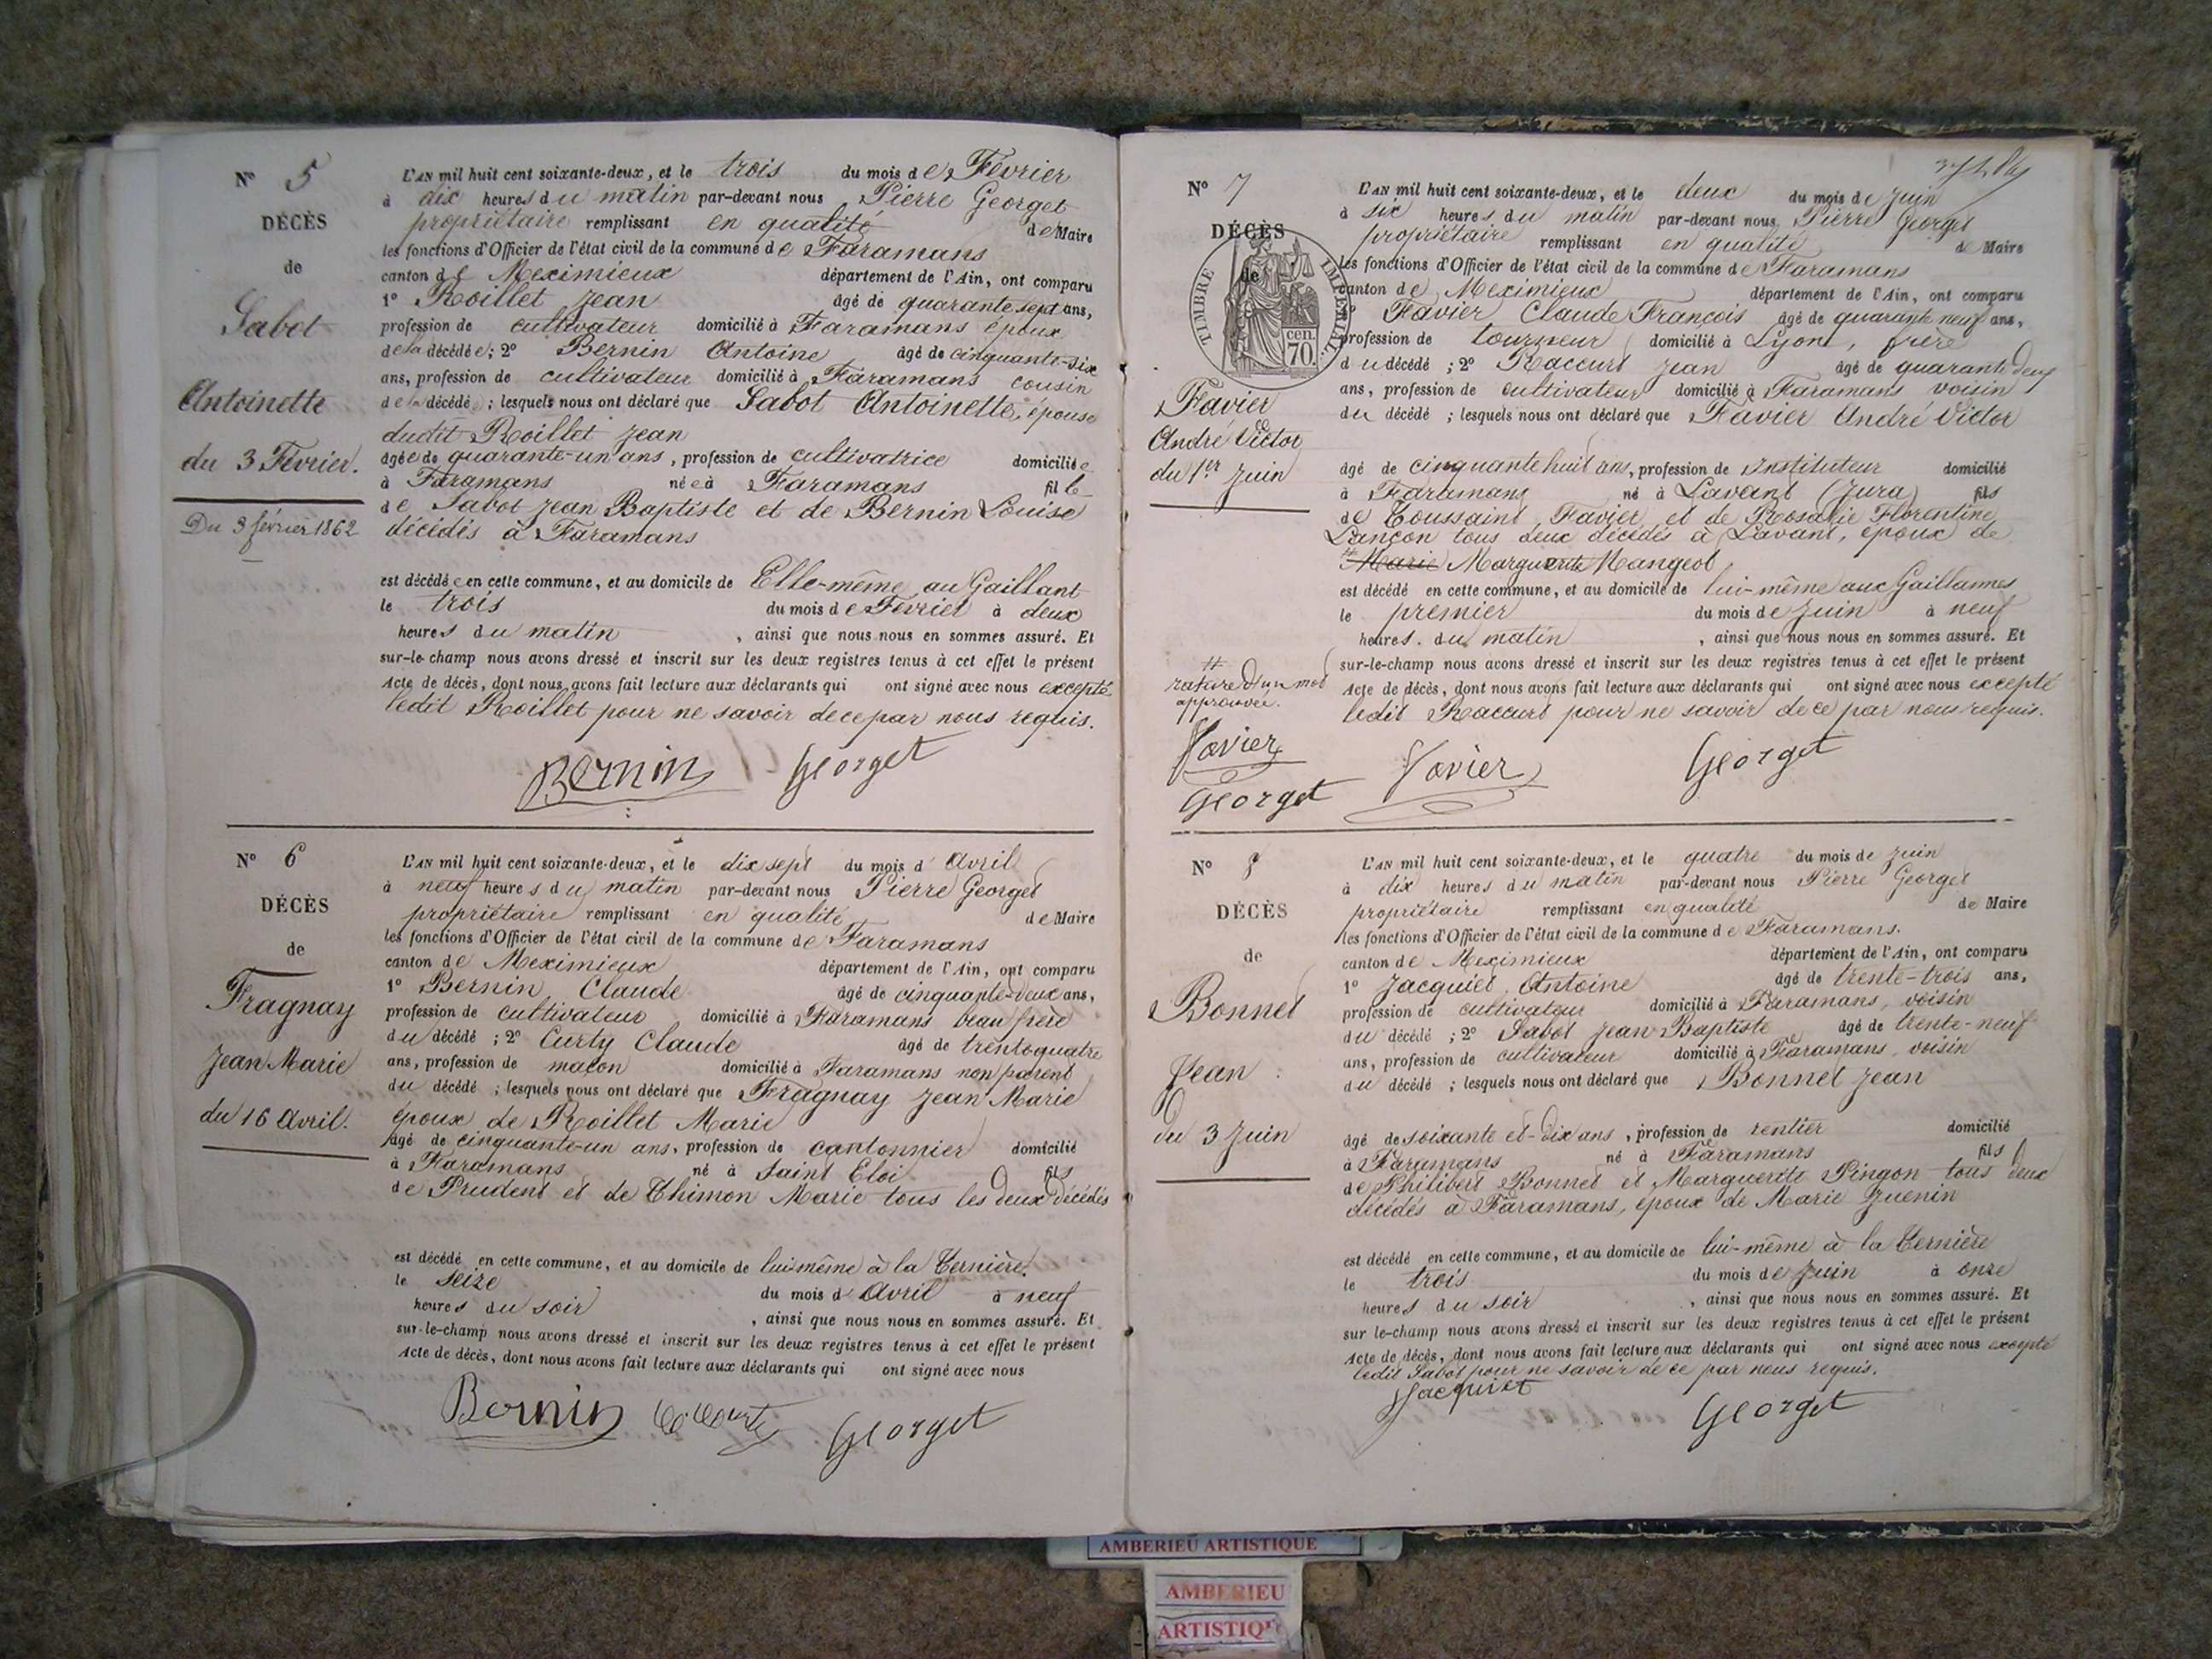 N° 5
DÉCÈS
de
Sabot
Antoinette
du 3 Février.
Du 3 février 1862
L'AN mil huit cent soixante-deux, et le trois du mois de Février
à dix heures du matin par-devant nous Pierre Georget
propriétaire remplissant en qualité de Maire
les fonctions d'Officier de l'état civil de la commune de Faramans
canton de Meximieux département de l'Ain, ont comparu
1° Roillet Jean âgé de quarante sept ans,
profession de cultivateur domicilié à Faramans époux
de la décédée; 2° Bernin Antoine âgé de cinquante-six
ans, profession de cultivateur domicilié à Faramans cousin
de la décédé ; lesquels nous ont déclaré que Sabot Antoinette, épouse
dudit Roillet Jean
âgée de quarante-un ans, profession de cultivatrice domiciliée
à Faramans née à Faramans fille
de Sabot Jean Baptiste et de Bernin Louise
décédés à Faramans
est décédée en cette commune, et au domicile de Elle-même au Gaillant
le trois du mois de Février à deux
heures du matin , ainsi que nous nous en sommes assuré. Et
sur-le-champ nous avons dressé et inscrit sur les deux registres tenus à cet effet le présent
Acte de décès, dont nous avons fait lecture aux déclarants qui ont signé avec nous excepté
ledit Roillet pour ne savoir de ce par nous requis.
Bernin Georget
N° 6
DÉCÈS
de
Fragnay
Jean Marie
du 16 Avril.
L'AN mil huit cent soixante-deux, et le dix sept du mois d'Avril
à neuf heures du matin par-devant nous Pierre Georget
propriétaire remplissant en qualité de Maire
les fonctions d'Officier de l'état civil de la commune de Faramans
canton de Meximieux département de l'Ain, ont comparu
1° Bernin Claude âgé de cinquante-deux ans,
profession de cultivateur domicilié à Faramans beau frère
du décédé ; 2° Curty Claude âgé de trente quatre
ans, profession de maçon domicilié à Faramans non parent
du décédé ; lesquels nous ont déclaré que Fragnay Jean Marie
époux de Roillet Marie
âgé de cinquante-un ans, profession de cantonnier domicilié
à Faramans né à Saint Eloi fils
de Prudent et de Thimon Marie tous les deux décédés
est décédé en cette commune, et au domicile de lui-même à la Ternière.
le seize du mois d'Avril à neuf
heures du soir , ainsi que nous nous en sommes assuré. Et
sur-le-champ nous avons dressé et inscrit sur les deux registres tenus à cet effet le présent
Acte de décès, dont nous avons fait lecture aux déclarants qui ont signé avec nous
Bernin Georget
N° 7
DÉCÈS
de
TIMBRE IMPÉRIAL
70 cen.
Favier
André Victor
du 1er Juin
rature d'un mot
approuvée.
Favier
Georget
L'AN mil huit cent soixante-deux, et le deux du mois de Juin
à six heures du matin par-devant nous Pierre Georget
propriétaire remplissant en qualité de Maire
les fonctions d'Officier de l'état civil de la commune de Faramans
canton de Meximieux département de l'Ain, ont comparu
1° Favier Claude François âgé de quarante neuf ans,
profession de tourneur domicilié à Lyon, frère
du décédé ; 2° Raccurt Jean âgé de quarante deux
ans, profession de cultivateur domicilié à Faramans voisin
du décédé ; lesquels nous ont déclaré que Favier André Victor
âgé de cinquante huit ans, profession de Instituteur domicilié
à Faramans né à Lavant (Jura) fils
de Toussaint Favier et de Rosalie Florentine
Lançon tous deux décédés à Lavant, époux de
Marie Marguerite Mangeot
est décédé en cette commune, et au domicile de lui-même aux Gaillannes
le premier du mois de Juin à neuf
heures du matin , ainsi que nous nous en sommes assuré. Et
sur-le-champ nous avons dressé et inscrit sur les deux registres tenus à cet effet le présent
Acte de décès, dont nous avons fait lecture aux déclarants qui ont signé avec nous excepté
ledit Raccurt pour ne savoir de ce par nous requis.
Favier Georget
N° 8
DÉCÈS
de
Bonnet
Jean
du 3 Juin
L'AN mil huit cent soixante-deux, et le quatre du mois de Juin
à dix heures du matin par-devant nous Pierre Georget
propriétaire remplissant en qualité de Maire
les fonctions d'Officier de l'état civil de la commune de Faramans.
canton de Meximieux département de l'Ain, ont comparu
1° Jacquiet Antoine âgé de trente-trois ans,
profession de cultivateur domicilié à Faramans, voisin
du décédé ; 2° Sabot Jean Baptiste âgé de trente-neuf
ans, profession de cultivateur domicilié à Faramans, voisin
du décédé ; lesquels nous ont déclaré que Bonnet Jean
âgé de soixante et dix ans, profession de rentier domicilié
à Faramans né à Faramans fils
de Philibert Bonnet et Marguerite Pingon tous deux
décédés à Faramans, époux de Marie Juenin
est décédé en cette commune, et au domicile de lui-même à la Ternière
le trois du mois de Juin à onze
heures du soir , ainsi que nous nous en sommes assuré. Et
sur le-champ nous avons dressé et inscrit sur les deux registres tenus à cet effet le présent
Acte de décès, dont nous avons fait lecture aux déclarants qui ont signé avec nous excepté
ledit Sabot pour ne savoir de ce par nous requis.
Jacquiet Georget
AMBERIEU ARTISTIQUE
AMBERIEU
ARTISTIQUE